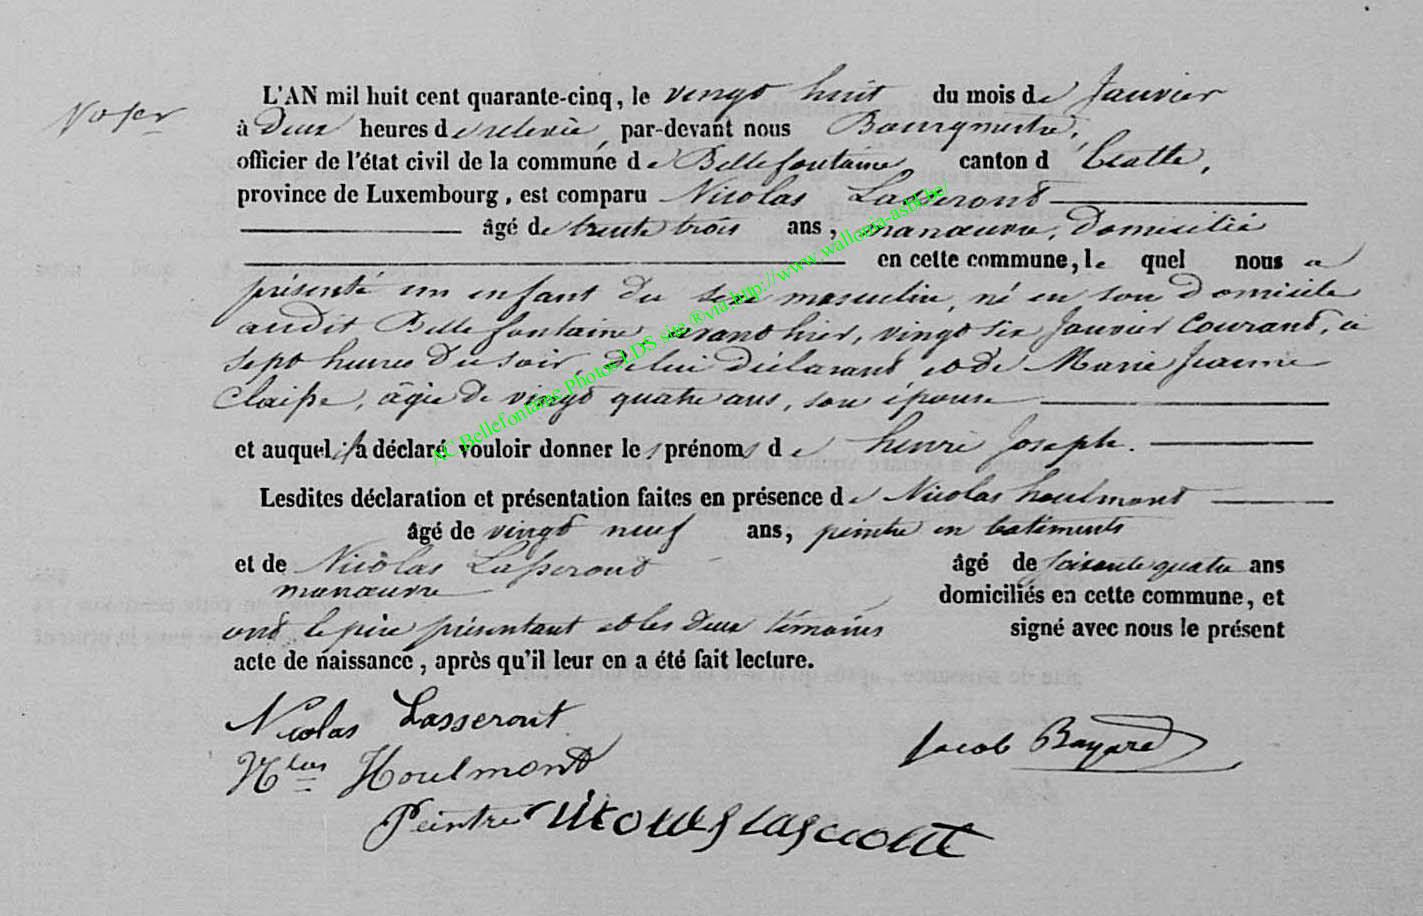 L'AN mil huit cent quarante-cinq, le vingt huit du mois de Janvier
à Deux heures de relevée, par-devant nous Bourgmestre,
officier de l'état civil de la commune de Bellefontaine canton d'Etalle,
province de Luxembourg, est comparu Nicolas Lasseront
âgé de trente trois ans, manœuvre, Domicilié
en cette commune, le quel nous a
présenté un enfant du sexe masculin, né en son Domicile
audit Bellefontaine, avant hier, vingt six Janvier Courant, à
sept heures Du soir, de lui déclarant et de Marie Jeanne
Claisse, âgée De vingt quatre ans, son épouse
et auquel il a déclaré vouloir donner les prénoms de henri Joseph.
Lesdites déclaration et présentation faites en présence de Nicolas houlmont
âgé de vingt neuf ans, peintre en batiments
et de Nicolas Lasseront âgé de soixante quatre ans
manœuvre domiciliés en cette commune, et
ont le père présentant et les deux témoins signé avec nous le présent
acte de naissance, après qu'il leur en a été fait lecture.
Nicolas Lasseront
Jacob Bayard
Nlas Houlmont
Peintre
AC Bellefontaine Photos LDS site ® via http://www.wallonia-asbl.be/